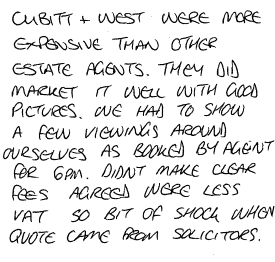 CUBITT + WEST WERE MORE
EXPENSIVE THAN OTHER
ESTATE AGENTS. THEY DID
MARKET IT WELL WITH GOOD
PICTURES. WE HAD TO SHOW
A FEW VIEWINGS AROUND
OURSELVES AS BOOKED BY AGENT
FOR 6PM. DIDNT MAKE CLEAR
FEES AGREED WERE LESS
VAT SO BIT OF SHOCK WHEN
QUOTE CAME FROM SOLICITORS.